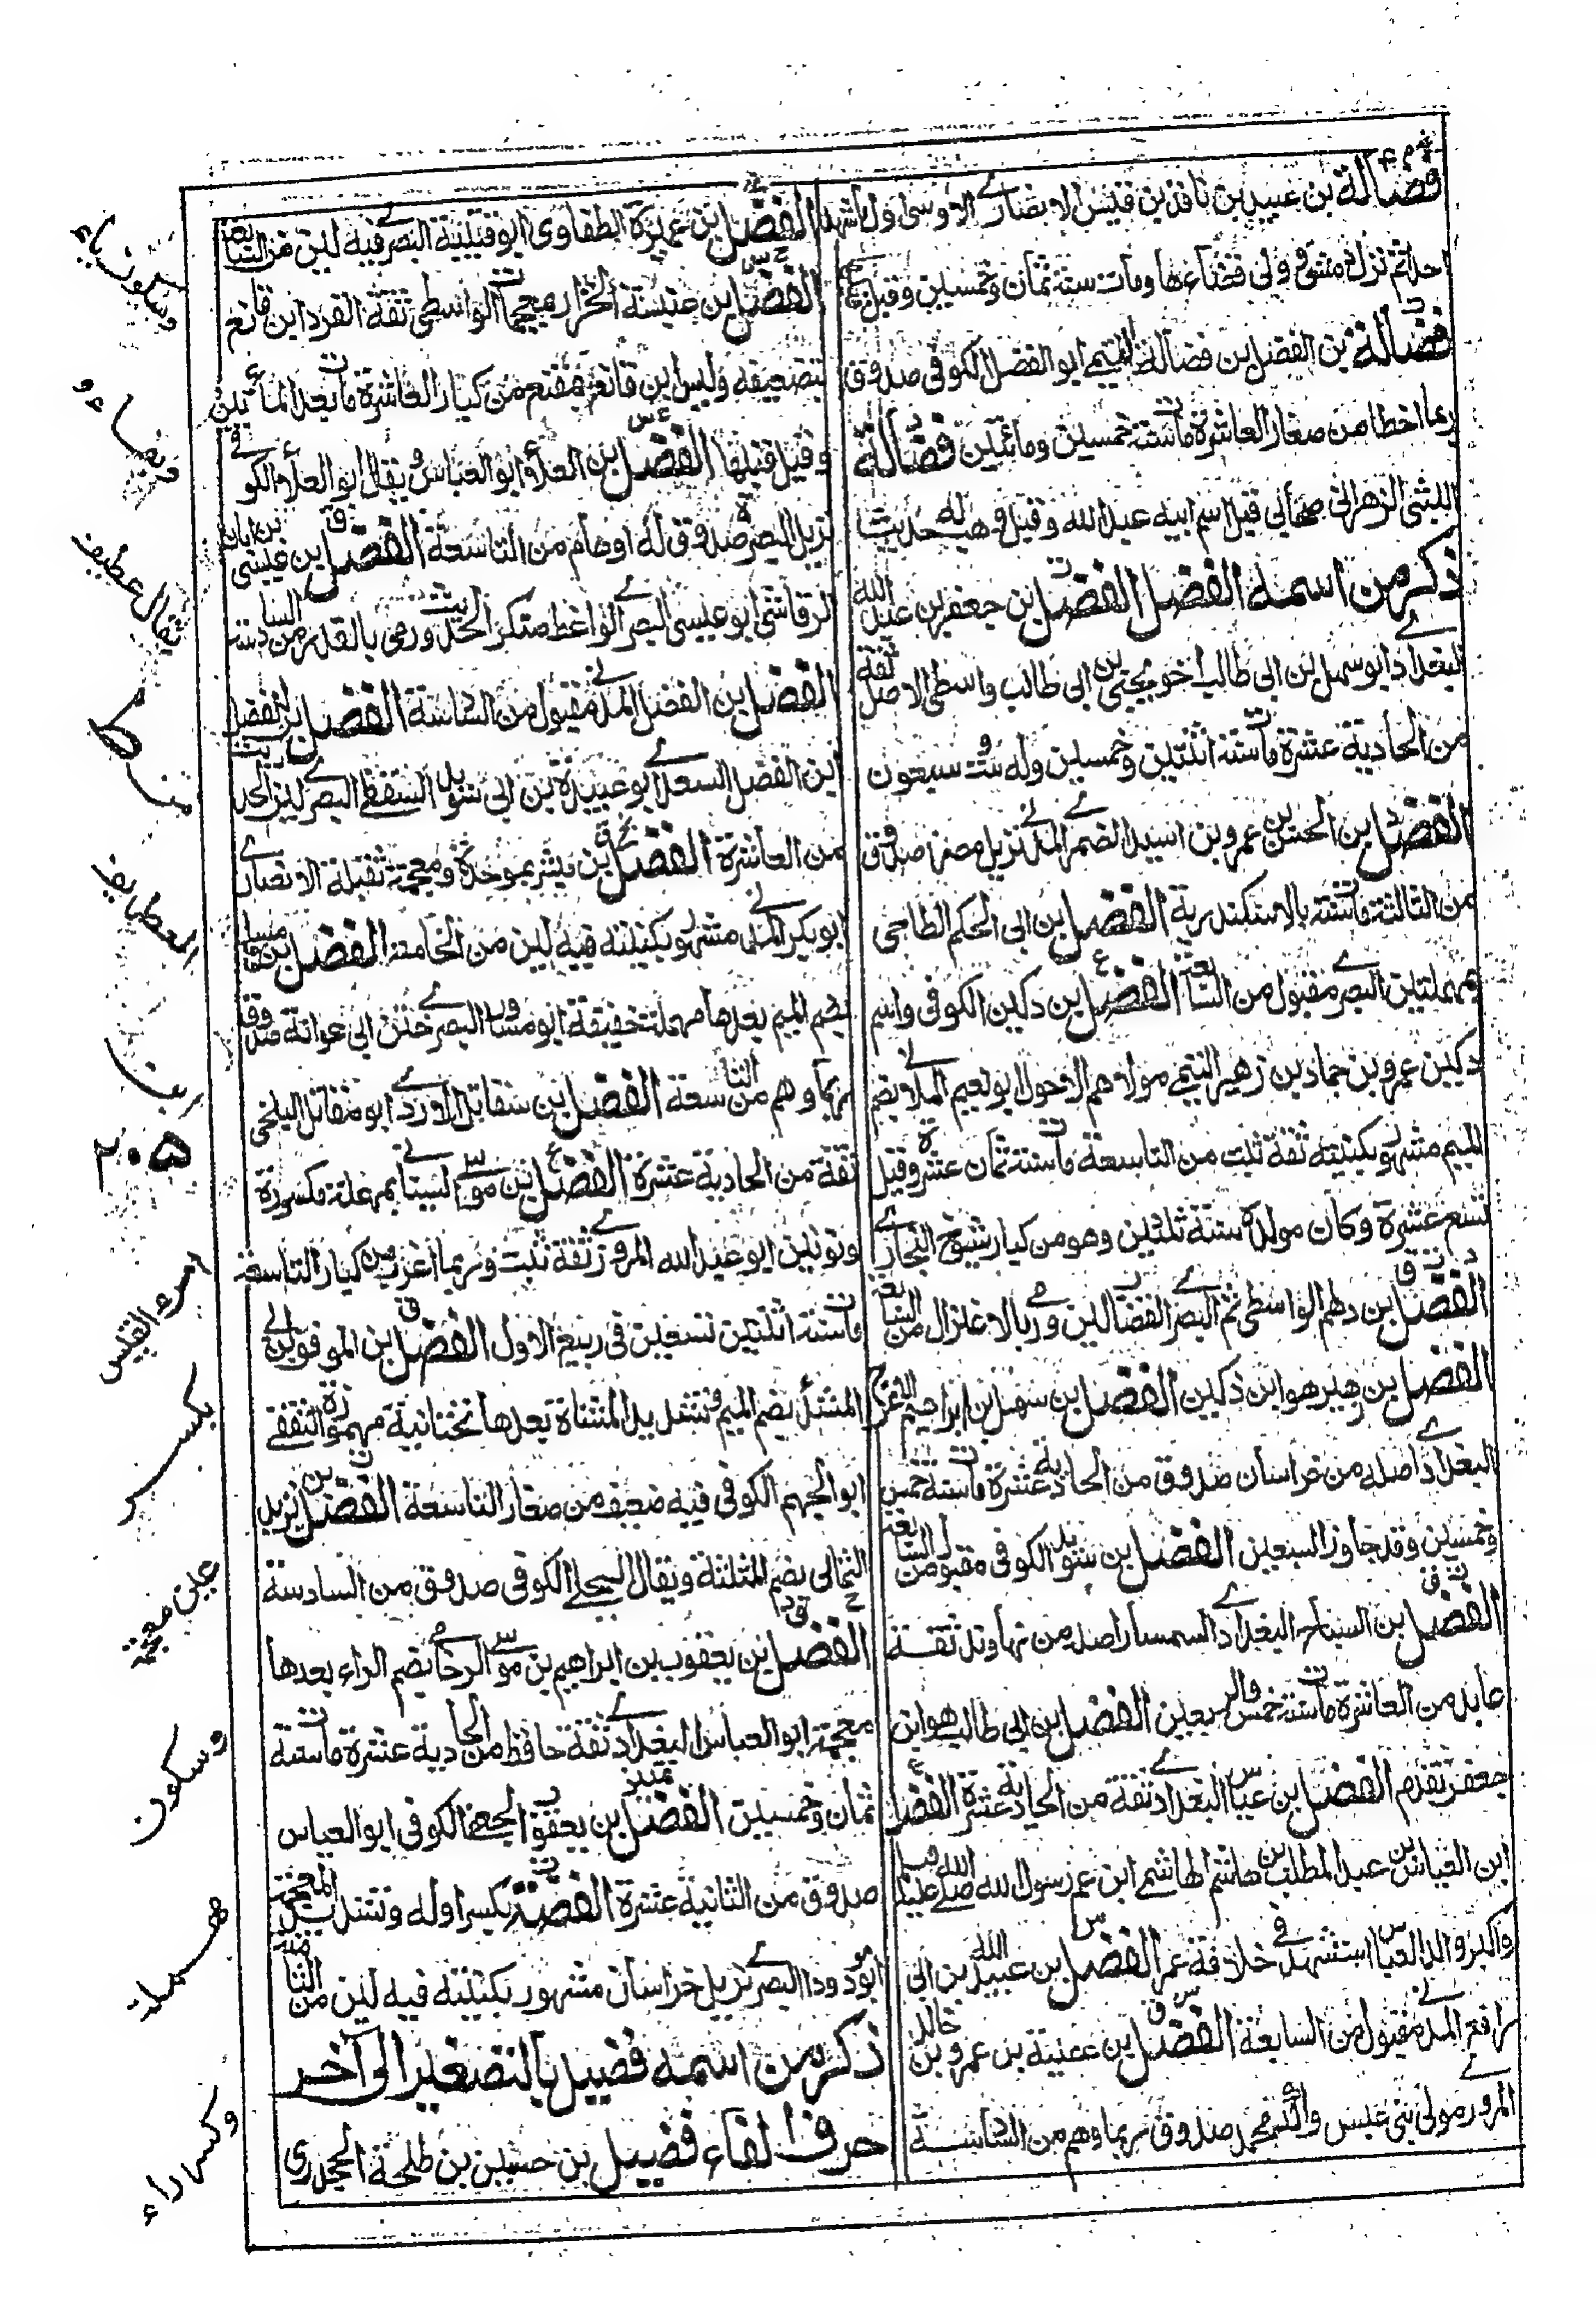 فضالة بن عبيد بن نافذ بن قيس الانصاري الاوسى اول ما شهد
احد ثم نزل دمشق وولى قضاءها ومات سنة ثمان وخمسين وقيل
فضالة بن الفضل بن فضالة التيمي ابو الفضل الكوفى صدوق
ربما اخطا من صغار العاشرة مات سنة خمسين ومائتين فضالة
الليثى الزهرانى صحابى قيل اسم ابيه عبد الله وقيل وهب له حديث
ذكر من اسمه الفضل الفضل بن جعفر بن عبد الله
البغدادي ابو سهل بن ابى طالب اخو يحيى بن ابى طالب واسطى الاصل ثقة
من الحادية عشرة مات سنة اثنتين وخمسين وله ست سبعون
الفضل بن الحسن بن عمرو بن امية الضمري المدنى نزيل مصر صدوق
من الثالثة مات سنة بالاسكندرية الفضل بن ابى الحكم الطاحى
بمهملتين البصري مقبول من السابعة الفضل بن دكين الكوفى واسم
دكين عمرو بن حماد بن زهير التيمي مولاهم الاحول ابو نعيم الملائي بضم
الميم مشهور بكنيته ثقة ثبت من التاسعة مات سنة ثمان عشرة وقيل
تسع عشرة وكان مولده سنة ثلثين وهو من كبار شيوخ البخاري
الفضل بن دلهم الواسطى ثم البصري القصاب لين ورمي بالاعتزال من السابعة
الفضل بن زهير هو ابن دكين الفضل بن سهل بن ابراهيم الاعرج
البغدادي اصله من خراسان صدوق من الحادية عشرة مات سنة خمس
وخمسين وقد جاوز السبعين الفضل بن سويد الكوفى مقبول من السابعة
الفضل بن الصباح البغدادي السمسار اصله من نهاوند ثقة
عابد من العاشرة مات سنة خمس واربعين الفضل بن ابى طالب هو ابن
جعفر تقدم الفضل بن عباس البغدادي ثقة من الحادية عشرة الفضل
ابن العباس بن عبد المطلب بن هاشم الهاشمي ابن عم رسول الله صلى الله عليه وسلم
واكبر ولد العباس استشهد في خلافة عمر الفضل بن عبيد الله بن ابى
رافع المدني مقبول من السابعة الفضل بن عطية بن عمرو بن خالد
المروزي مولى بنى عبس والد محمد صدوق ربما وهم من السادسة
الفضل بن عميرة الطفاوى ابو قتيبة البصري فيه لين من السابعة
الفضل بن عنبسة الخزاز بمعجمات الواسطى ثقة انفرد ابن قانع
بتضعيفه وليس ابن قانع بمقنع من كبار العاشرة مات بعد المأتين
وقيل قبلها الفضل بن العلاء ابو العباس ويقال ابو العلاء الكوفي
نزيل البصرة صدوق له اوهام من التاسعة الفضل بن عيسى بن ابان
الرقاشى ابو عيسى البصري الواعظ منكر الحديث ورمى بالقدر من السادسة
الفضل بن الفضل المدني مقبول من السادسة الفضل بن الفضل
ابن الفضل السعدي ابو عبيدة بن ابى سويد السقطي البصري لين الحديث
من العاشرة الفضل بن مبشر بموحدة ومعجمة ثقيلة الانصاري
ابو بكر المدني مشهور بكنيته فيه لين من الخامسة الفضل بن مساور
بضم الميم بعدها مهملة خفيفة ابو مساور البصري ختن ابى عوانة صدوق
ربما وهم من التاسعة الفضل بن مقاتل الازدي ابو مقاتل البلخى
ثقة من الحادية عشرة الفضل بن موسى السيناني بمهملة مكسورة
ونونين ابو عبد الله المروزي ثقة ثبت وربما اغرب من كبار التاسعة
مات سنة اثنتين تسعين فى ربيع الاول الفضل بن الموفق بن ابي
المتئد بضم الميم وتشديد المثناة بعدها تحتانية مهموزة الثقفي
ابو الجهم الكوفى فيه ضعف من صغار التاسعة الفضل بن يزيد
الثمالى بضم المثلثة ويقال البجلي الكوفى صدوق من السادسة
الفضل بن يعقوب بن ابراهيم بن موسى الرخامي بضم الراء بعدها
معجمة ابو العباس البغدادي ثقة حافظ من الحادية عشرة مات سنة
ثمان وخمسين الفضل بن يعقوب الجعفي الكوفى ابو العباس
صدوق من الثانية عشرة الفضة بكسر اوله وتشديد المعجمة
ابو مودود البصري نزيل خراسان مشهور بكنيته فيه لين من الثامنة
ذكر من اسمه فضيل بالتصغير الى آخر
حرف الفاء فضيل بن حسين بن طلحة الجحدري
وسكون ياء
وبفاء و
يقال عطيف
العطريف
٢٠٥
امرء القيس
بكسر
عين معجمة
وسكون
مهملة
وكسر راء